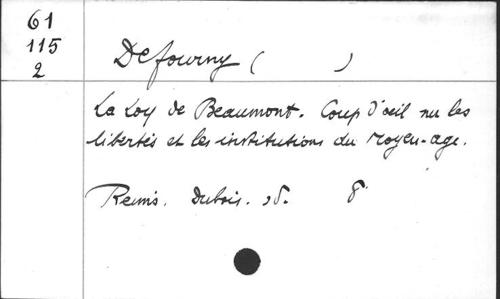 61
115
2
Defourny ( )
La Loy de Beaumont. Coup d'oeil sur les
libertés et les institutions du Moyen-age.
Reims. Dubois. s.d. 8°